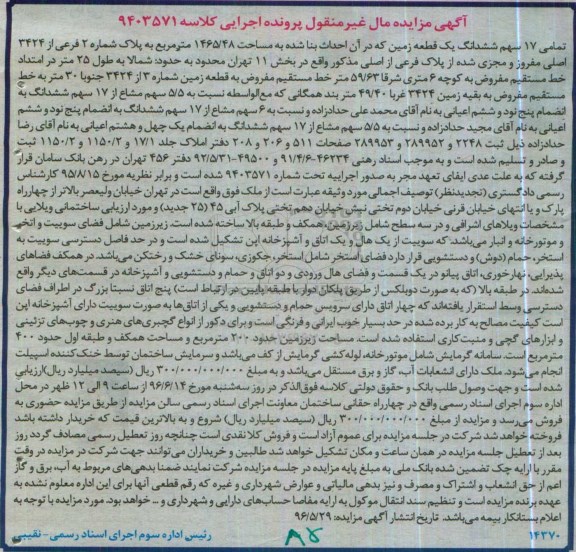 آگهی مزایده مال غیر منقول پرونده اجرایی کلاسه ۹۴۰۳۵۷۱
تمامی ۱۷ سهم ششدانگ یک قطعه زمین که در آن احداث بنا شده به مساحت ۱۴۶۵/۴۸ مترمربع به پلاک شماره ۲ فرعی از ۳۴۲۴
اصلی مفروز و مجزی شده از پلاک فرعی از اصلی مذکور واقع در بخش ۱۱ تهران محدود به حدود: شمالا به طول ۲۵ متر در امتداد
خط مستقیم مفروض به کوچه ۶ متری شرقا ۵۹/۶۳ متر خط مستقیم مفروض به قطعه زمین شماره ۳ از ۳۴۲۴ جنوبا ۳۰ متر به خط
مستقیم مفروض به بقیه زمین ۳۴۲۴ غربا ۴۹/۴۰ متر بند همگانی که مع‌الواسطه نسبت به ۵/۵ سهم مشاع از ۱۷ سهم ششدانگ به
انضمام پنج نود و ششم اعیانی به نام آقای محمد علی حدادزاده و نسبت به ۶ سهم مشاع از ۱۷ سهم ششدانگ به انضمام پنج نود و ششم
اعیانی به نام آقای مجید حدادزاده و نسبت به ۵/۵ سهم مشاع از ۱۷ سهم ششدانگ به انضمام یک چهل و هشتم اعیانی به نام آقای رضا
حدادزاده ذیل ثبت ۲۲۴۸ و ۲۸۹۹۵۲ و ۲۸۹۹۵۳ صفحات ۵۱۱ و ۲۰۶ و ۲۰۸ دفتر املاک جلد ۱۷/۱ و ۱۱۵۰/۲ و ۱۱۵۰/۲ ثبت
و صادر و تسلیم شده است و به موجب اسناد رهنی ۴۶۲۳۴-۹۱/۴/۶ و ۴۹۵۰۰-۹۲/۵/۳۱ دفتر ۴۵۶ تهران در رهن بانک سامان قرار
گرفته که به علت عدی ایفای تعهد مجر به صدور اجراییه تحت شماره ۹۴۰۳۵۷۱ شده است و برابر نظریه مورخ ۹۵/۸/۱۵ کارشناس
رسمی دادگستری (تجدیدنظر) توصیف اجمالی مورد وثیقه عبارت است از ملک فوق واقع است در تهران خیابان ولیعصر بالاتر از چهارراه
پارک وی انتهای خیابان قرنی خیابان دوم تختی نبش خیابان دهم تختی پلاک آبی ۴۵ (۲۵ جدید) و مورد ارزیابی ساختمانی ویلایی با
مشخصات ویلاهای اشرافی و در سه سطح شامل زیرزمین، همکف و طبقه بالا ساخته شده است. زیرزمین شامل فضای سوییت و اتخر
و موتورخانه و انبار می‌باشد، که سوییت از یک هال و یک اتاق و آشپزخانه اپن تشکیل شده است و در حد فاصل دسترسی سوییت به
استخر، حمام (دوش) و دستشویی قرار دارد فضای استخر شامل استخر، جکوزی، سونای خشک و رختکن می‌باشد. در همکف فضاهای
پذیرایی، نهارخوری، اتاق پیانو در یک قسمت و فضای هال ورودی و دو اتاق و حمام و دستشویی و آشپزخانه در قسمت‌های دیگر واقع
شده‌اند. در طبقه بالا (که به صورت دوبلکس از طریق پلکان دوار با طبقه پایین در ارتباط است) پنج اتاق نسبتا بزرگ در اطراف فضای
دسترسی وسط استقرار یافته‌اند که چهار اتاق دارای سرویس حمام و دستشویی و یکی از اتاق‌ها به صورت سوییت دارای آشپزخانه اپن
است کیفیت مصالح به کار برده شده در حد بسیار خوب ایرانی و فرنگی است و برای دکور از انواع گچبری‌های هنری و چوب‌های تزئینی
و ابزارهای گچی و منبت‌کاری استفاده شده است. مساحت زیرزمین حدود ۲۰۰ مترمربع و مساحت همکف و طبقه اول حدود ۴۰۰
مترمربع است. سامانه گرمایش شامل موتورخانه، لوله‌کشی گرمایش از کف می‌باشد و سرمایش ساختمان توسط خنک‌کننده اسپیلت
انجام می‌شود. ملک دارای انشعابات آب، گاز و برق مستقل می‌باشد و به مبلغ ۳۰۰/۰۰۰/۰۰۰/۰۰۰ ریال (سیصد میلیارد ریال) ارزیابی
شده است و جهت وصول طلب بانک و حقوق دولتی کلاسه فوق‌الذکر در روز سه‌شنبه مورخ ۹۶/۶/۱۴ از ساعت ۹ الی ۱۲ ظهر در محل
اداره سوم اجرای اسناد رسمی واقع در چهارراه حقانی ساختمان معاونت اجرای اسناد رسمی سالن مزایده از طریق مزایده حضوری به
فروش می‌رسد و مزایده از مبلغ ۳۰۰/۰۰۰/۰۰۰/۰۰۰ ریال (سیصد میلیارد ریال) شروع و به بالاترین قیمت که خریدار داشته باشد
فروخته خواهد شد شرکت در جلسه مزایده برای عموم آزاد است و فروش کلا نقدی است چنانچه روز تعطیل رسمی مصادف گردد روز
بعد از تعطیل جلسه مزایده در همان ساعت و مکان تشکیل خواهد شد طالبین و خریداران می‌توانند جهت شرکت در مزایده در وقت
مقرر با ارایه چک تضمین شده بانک ملی به مبلغ پایه مزایده در جلسه مزایده شرکت نمایند ضمنا بدهی‌های مربوط به آب، برق و گاز
اعم از حق انشعاب و اشتراک و مصرف و نیز بدهی مالیاتی و عوارض شهرداری و غیره که رقم قطعی آنها برای این اداره معلوم نشده به
عهده برنده مزایده است و تنظیم سند انتقال موکول به ارایه مفاصا حساب‌های دارایی و شهرداری و ... خواهد بود. مورد مزایده با توجه به
اعلام بستانکار بیمه می‌باشد. تاریخ انتشار آگهی مزایده: ۹۶/۵/۲۹
۱۴۳۷۰
رئیس اداره سوم اجرای اسناد رسمی - نقیبی